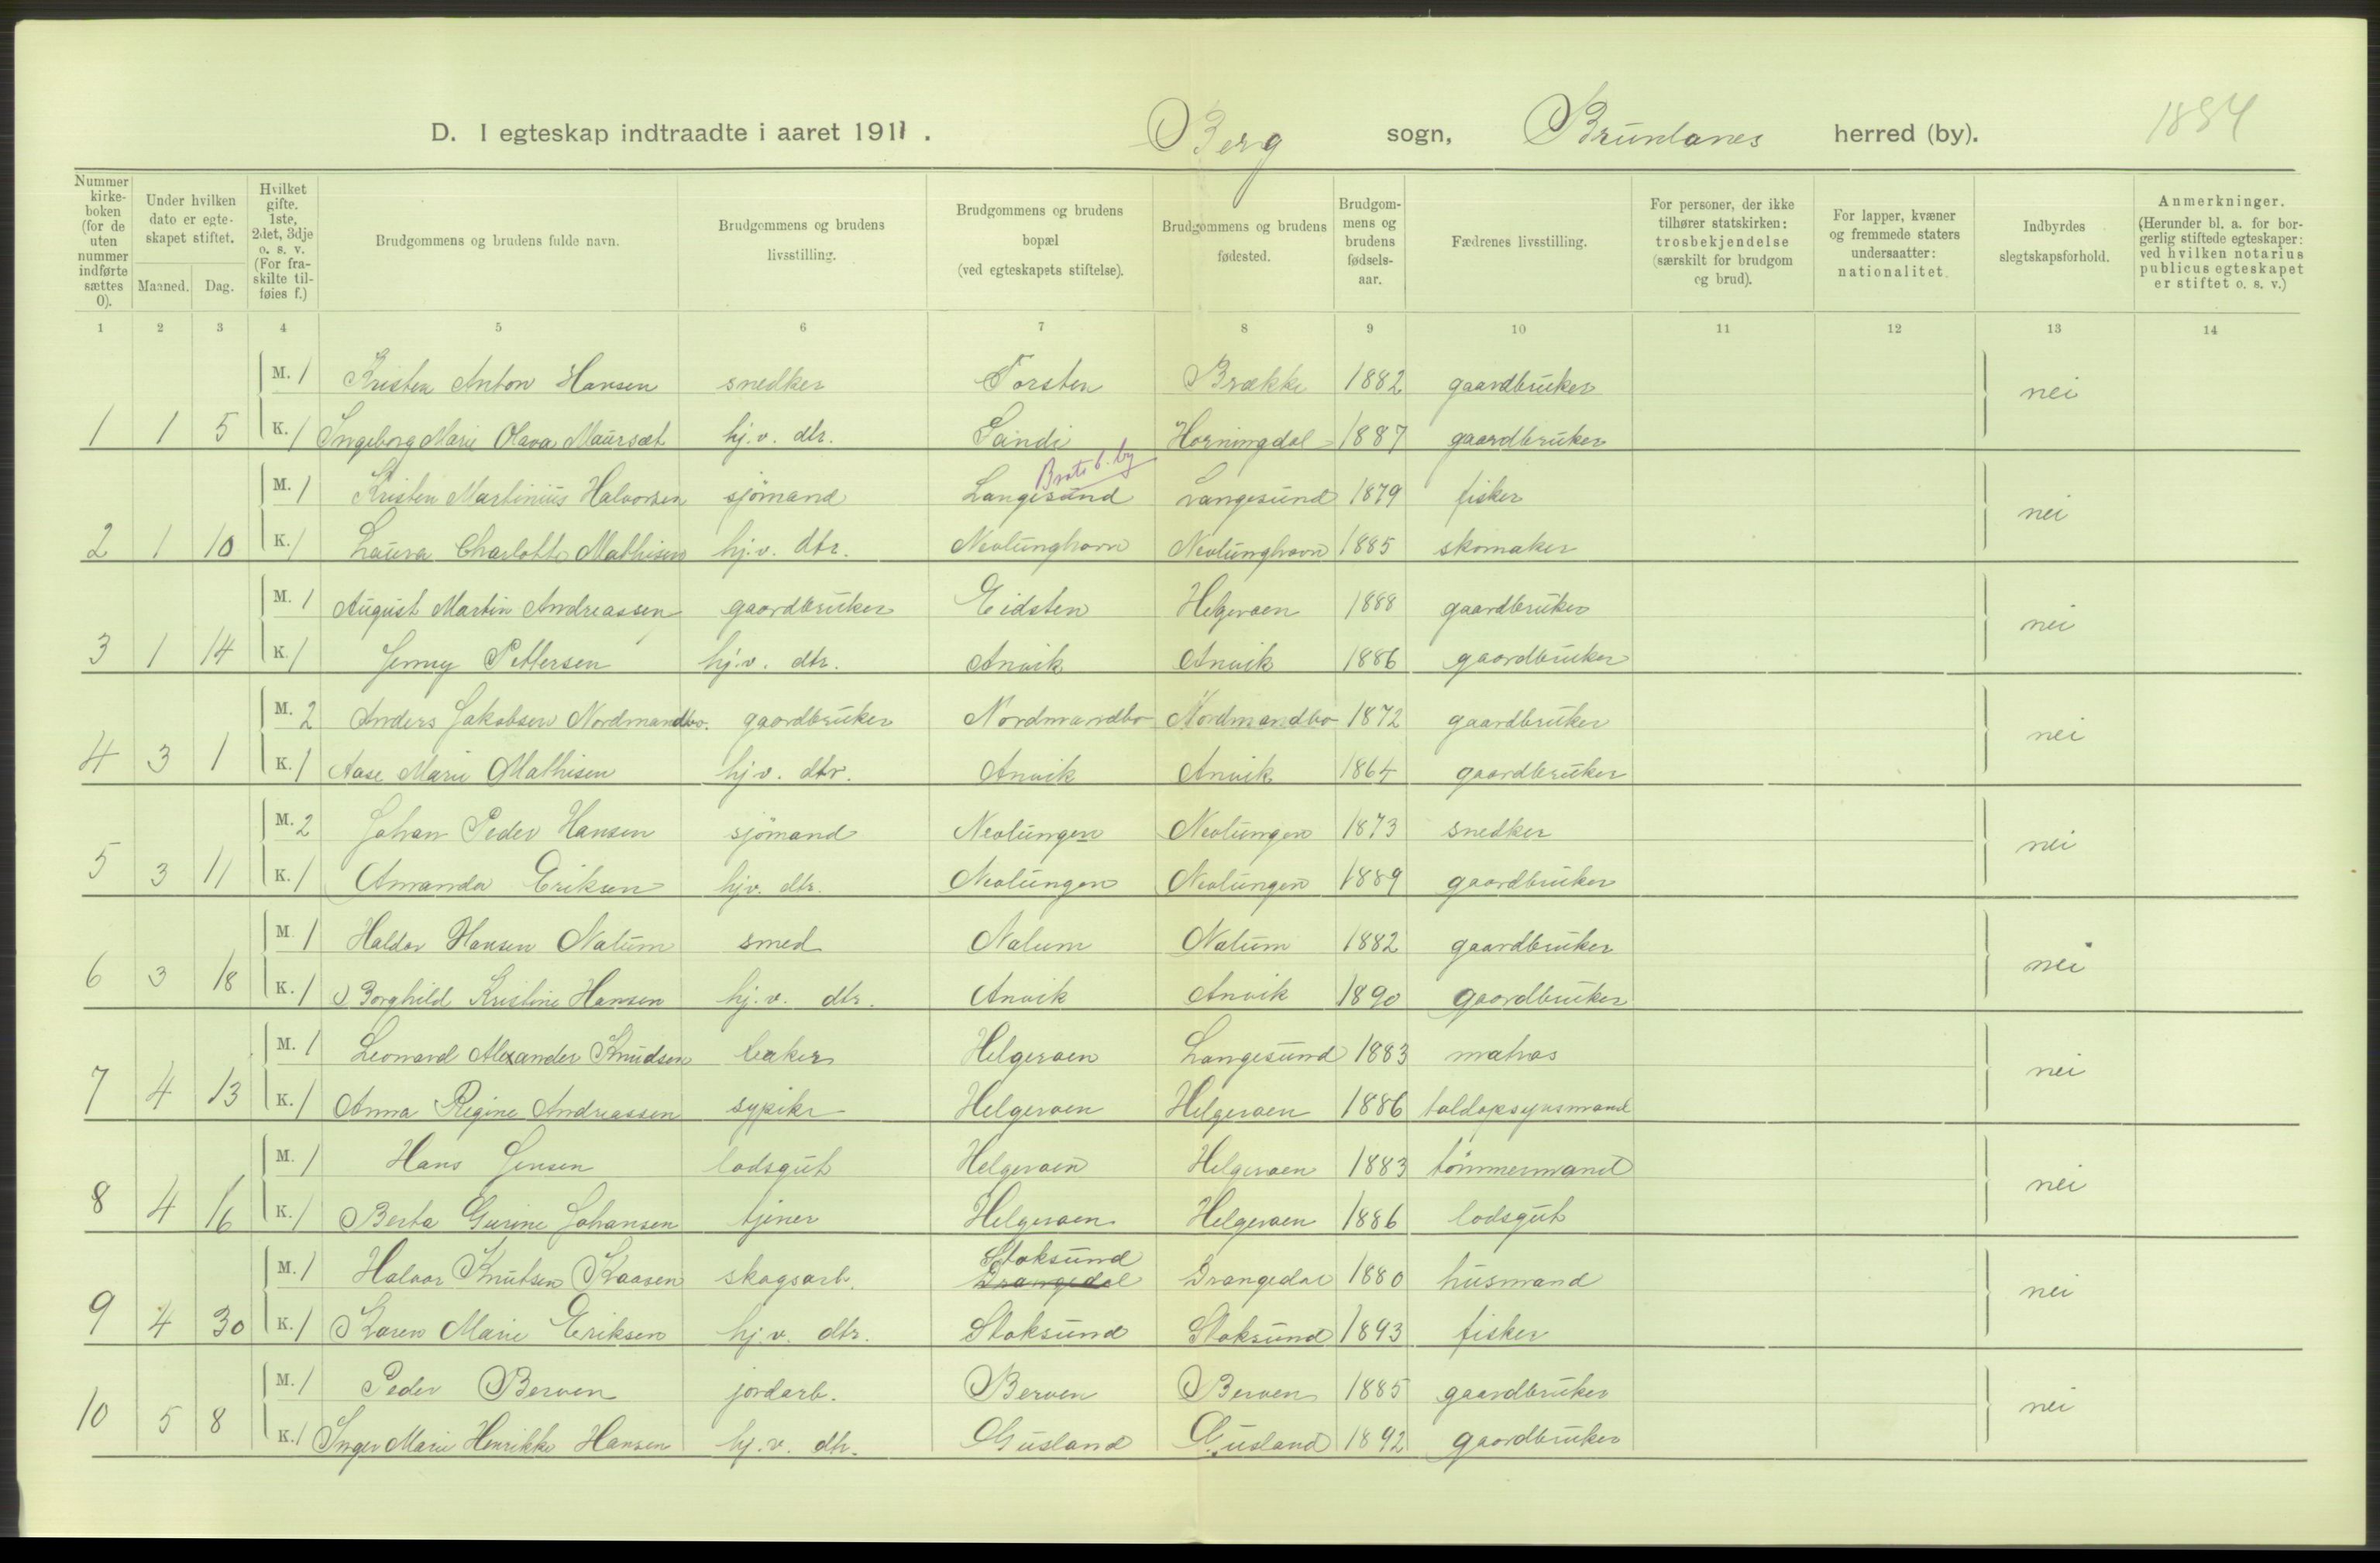 D. I egteskap indtraadte i aaret 1911. Berg sogn, Brunlanes herred (by). 1884
Nummer kirkeboken (for de uten nummer indførte sættes 0).
Under hvilken dato er egteskapet stiftet.
Maaned. Dag.
Hvilket gifte. 1ste, 2det, 3dje o. s. v. (For fraskilte tilføies f.)
Brudgommens og brudens fulde navn.
Brudgommens og brudens livsstilling.
Brudgommens og brudens bopæl (ved egteskapets stiftelse).
Brudgommens og brudens fødested.
Brudgommens og brudens fødselsaar.
Fædrenes livsstilling.
For personer, der ikke tilhører statskirken: trosbekjendelse (særskilt for brudgom og brud).
For lapper, kvæner og fremmede staters undersaatter: nationalitet.
Indbyrdes slegtskapsforhold.
Anmerkninger. (Herunder bl. a. for borgerlig stiftede egteskaper: ved hvilken notarius publicus egteskapet er stiftet o. s. v.)
1 2 3 4 5 6 7 8 9 10 11 12 13 14
M. 1 Kristen Anton Hansen snedker Torsten Brække 1882 gaardbruker nei
1 1 5 K. 1 Ingeborg Marie Olava Maursæt hj. v. dtr. Sandi Horningdal 1887 gaardbruker
Brats b. by
M. 1 Kristen Martinius Halvorsen sjømand Langesund Langesund 1879 fisker nei
2 1 10 K. 1 Laura Charlotte Mathisen hj. v. dtr. Nevlunghavn Nevlunghavn 1885 skomaker
M. 1 August Martin Andreassen gaardbruker Eidsten Helgeroen 1888 gaardbruker nei
3 1 14 K. 1 Jenny Pettersen hj. v. dtr. Anvik Anvik 1886 gaardbruker
M. 2 Anders Jakobsen Nordmandbo. gaardbruker Nordmandbo Nordmandbo 1872 gaardbruker nei
4 3 1 K. 1 Aase Marie Mathisen hj v. dtr. Anvik Anvik 1864 gaardbruker
M. 2 Johan Peder Hansen sjømand Nevlungen Nevlungen 1873 snedker nei
5 3 11 K. 1 Amanda Eriksen hjv. dtr. Nevlungen Nevlungen 1889 gaardbruker
M 1 Haldor Hansen Nalum smed Nalum Nalum 1882 gaardbruker nei
6 3 18 K. 1 Borghild Kristine Hansen hj. v. dtr. Anvik Anvik 1890 gaardbruker
M. 1 Leonard Alexander Knudsen baker Helgeroen Langesund 1883 matros nei
7 4 13 K. 1 Anna Regine Andreassen sypike Helgeroen Helgeroen 1886 toldopsynsmand
M. 1 Hans Jensen lodsgut Helgeroen Helgeroen 1883 tømmermand nei
8 4 16 K. 1 Berta Gurine Johansen tjener Helgeroen Helgeroen 1886 lodsgut
Stoksund
M. 1 Halvor Knutsen Kaasen skogsarb. Drangedal Drangedal 1880 husmand nei
9 4 30 K. 1 Karen Marie Eriksen hj. v. dtr. Stoksund Stoksund 1893 fisker
M. 1 Peder Berven jordarb. Berven Berven 1885 gaardbruker nei
10 5 8 K. 1 Inger Marie Henrikke Hansen hj. v. dtr. Gusland Gusland 1892 gaardbruker